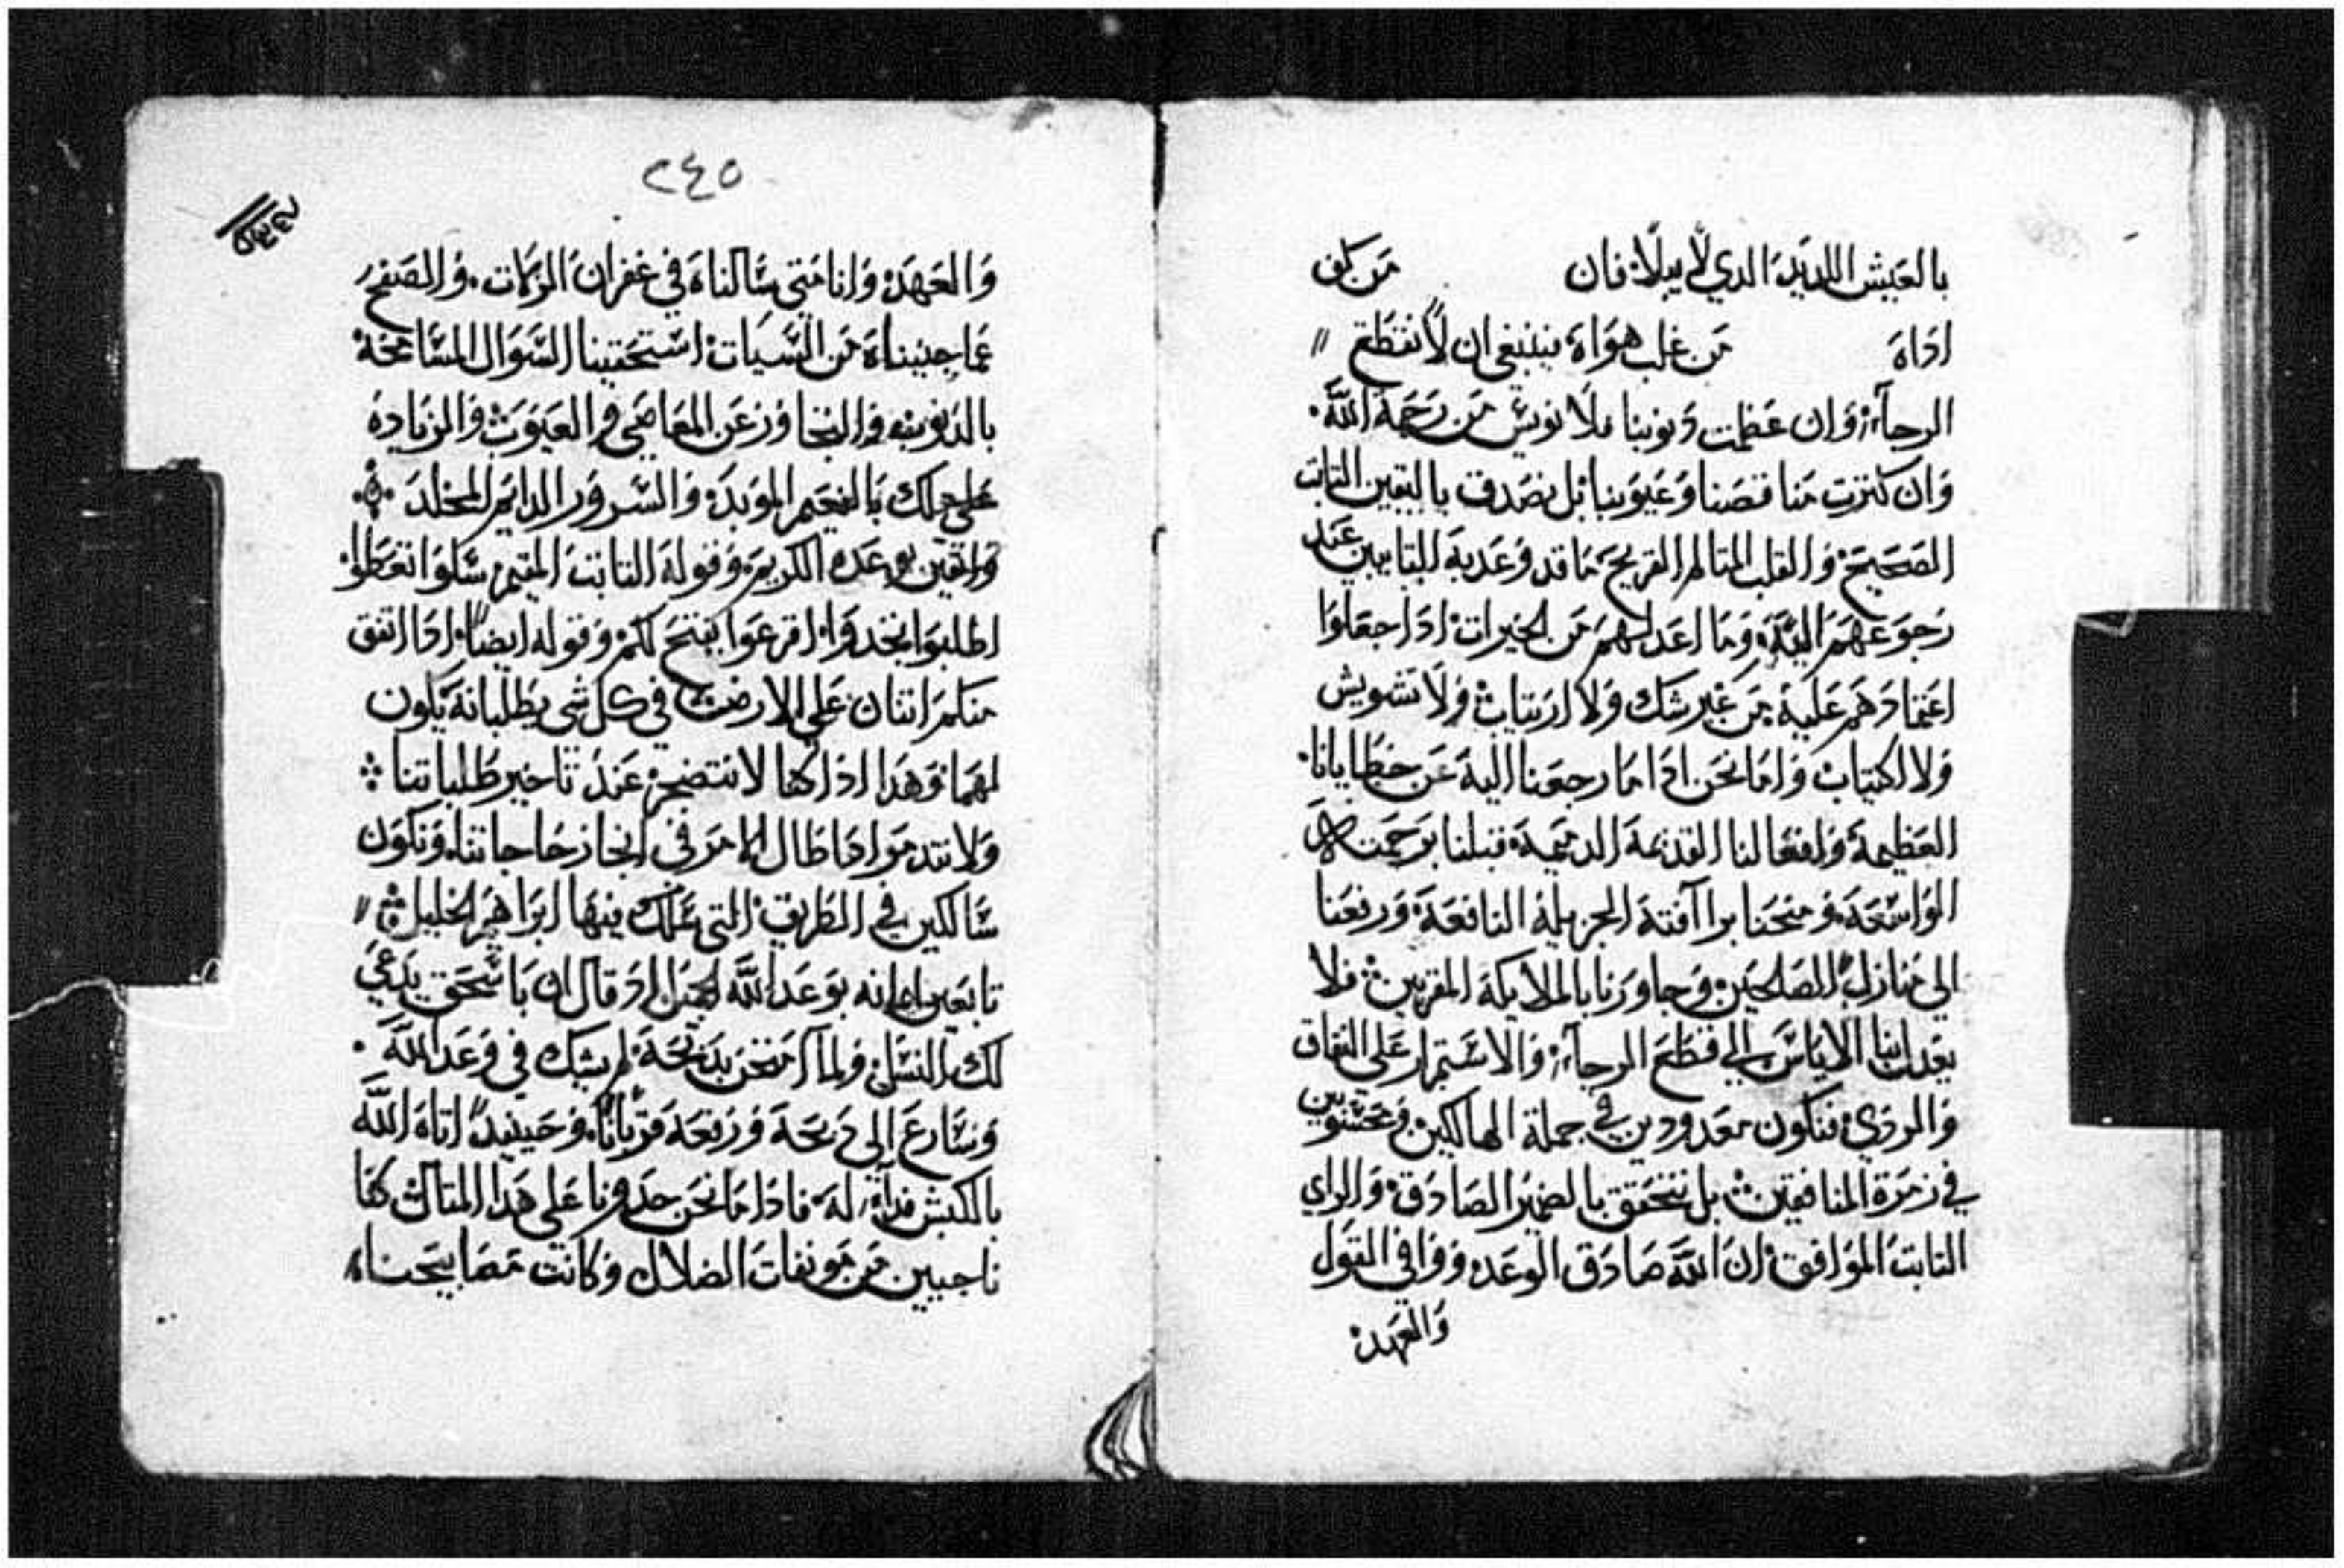 بالعيش اللديد الدي لا يبلا فان من كف
اداه من غلب هواه فينبغي ان لا نقطع
الرجآء وان عظمت دنوبنا فلا نويس من رحمة الله
وان كترت مناقصنا وعيوبنا بل نصدق باليقين التابت
الصحيح والقلب المتالم القريح ما قد وعد به التايبين عند
رجوعهم اليه وما اعد لهم من الخيرات ادا جعلوا
اعتمادهم عليه من غير شك ولا ارتياب ولا تشويش
ولا اكتياب واما نحن ادا ما رجعنا اليه عن خطايانا
العظيمة وافعالنا القديمة الدميمة قبلنا برحمته
الواسعة ومنحنا برآافته الجزيلة النافعة ورفعنا
الي منازل الصالحين وجاورنا بالملايكة المقربين فلا
يعدل بنا الاياس الي قطع الرجآء والاستمرار علي النفاق
والردي فنكون معدودين في جملة الهالكين ومحشوبين
في زمرة المنافقين بل نتحقق بالضمير الصادق والراي
التابت الموافق ان الله صادق الوعد ووافي القول
والعهد
٢٤٥
والعهد وانا متي سالناه في غفران الزلات والصفح
عما جنيناه من السيات استحقينا السوال المسامحة
بالدنوب والتجاوز عن المعاصي والعيوب والزيادة
علي دلك بالنعيم الموبد والسرور الدايم المخلد
واتقين بوعده الكريم وقوله التابت المقيم سلوا تعطوا
اطلبوا تجدوا اقرعوا يفتح لكم وقوله ايضا ادا اتفق
منكم اتنان علي الارض في كل شي يطلبانه يكون
لهما وهدا ادراكها لا نتضجر عند تاخير طلباتنا
ولا نتدمر ادا طال الامر في انجاز حاجاتنا ونكون
سالكين في الطريق التي سلك فيها ابراهيم الخليل
تابعين ايمانه بوعد الله الجليل اد قال ان باسحق يدعي
لك النسل ولما امتحن بدبحه لم يشك في وعد الله
وسارع الي دبحه ورفعه قربانا وحينيد اتاه الله
بالكبش فدآء له فادا ما نحن حدونا علي هدا المتال كنا
ناجيين من موبقات الضلال وكانت مصابيحنا